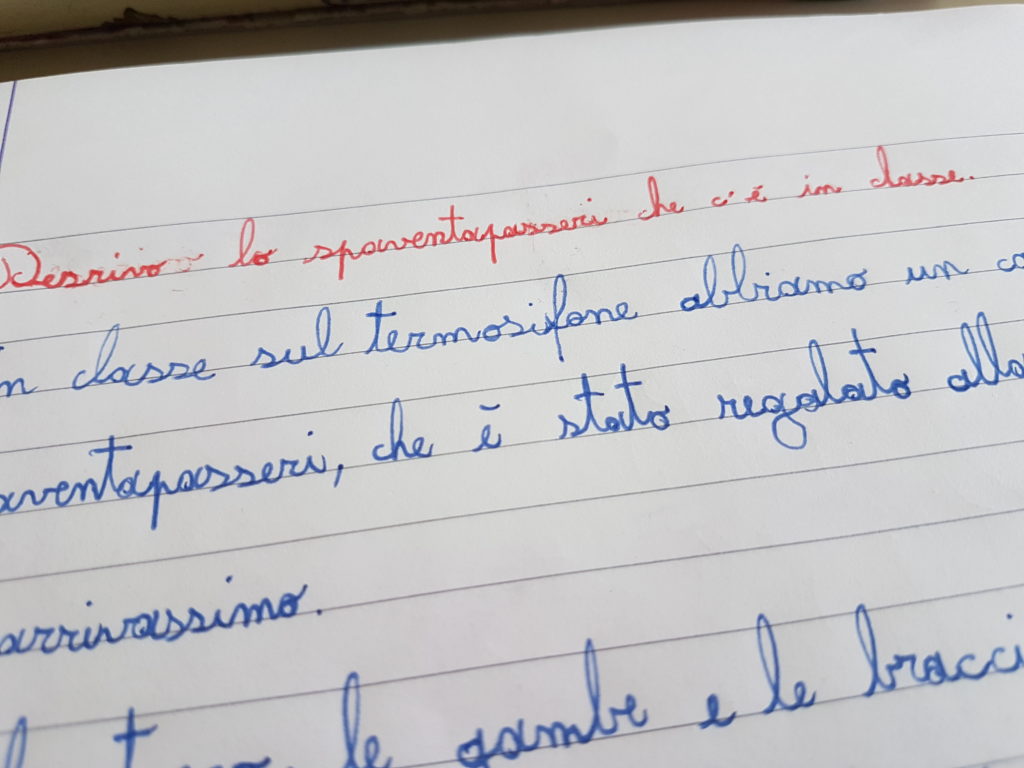 Descrivo lo spaventapasseri che c'è in classe.
n classe sul termosifone abbiamo un co
aventapasseri, che è stato regalato alla
arrivassimo.
le gambe e le bracci